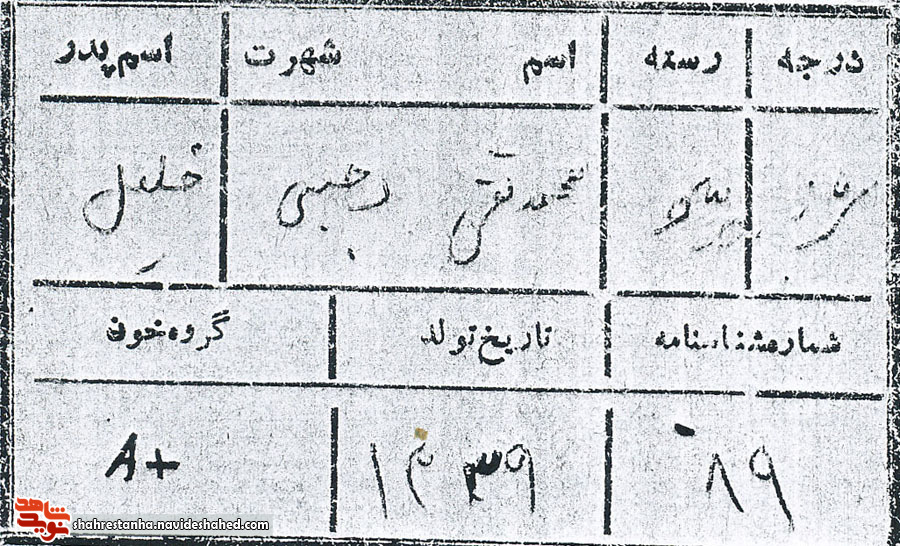 درجه رسته اسم شهرت اسم پدر
سرباز محمد تقی رجبی خلیل
شماره شناسنامه تاریخ تولد گروه خون
۸۹ ۱۳۳۹ A+
نوید شاهد
shahrestanha.navideshahed.com